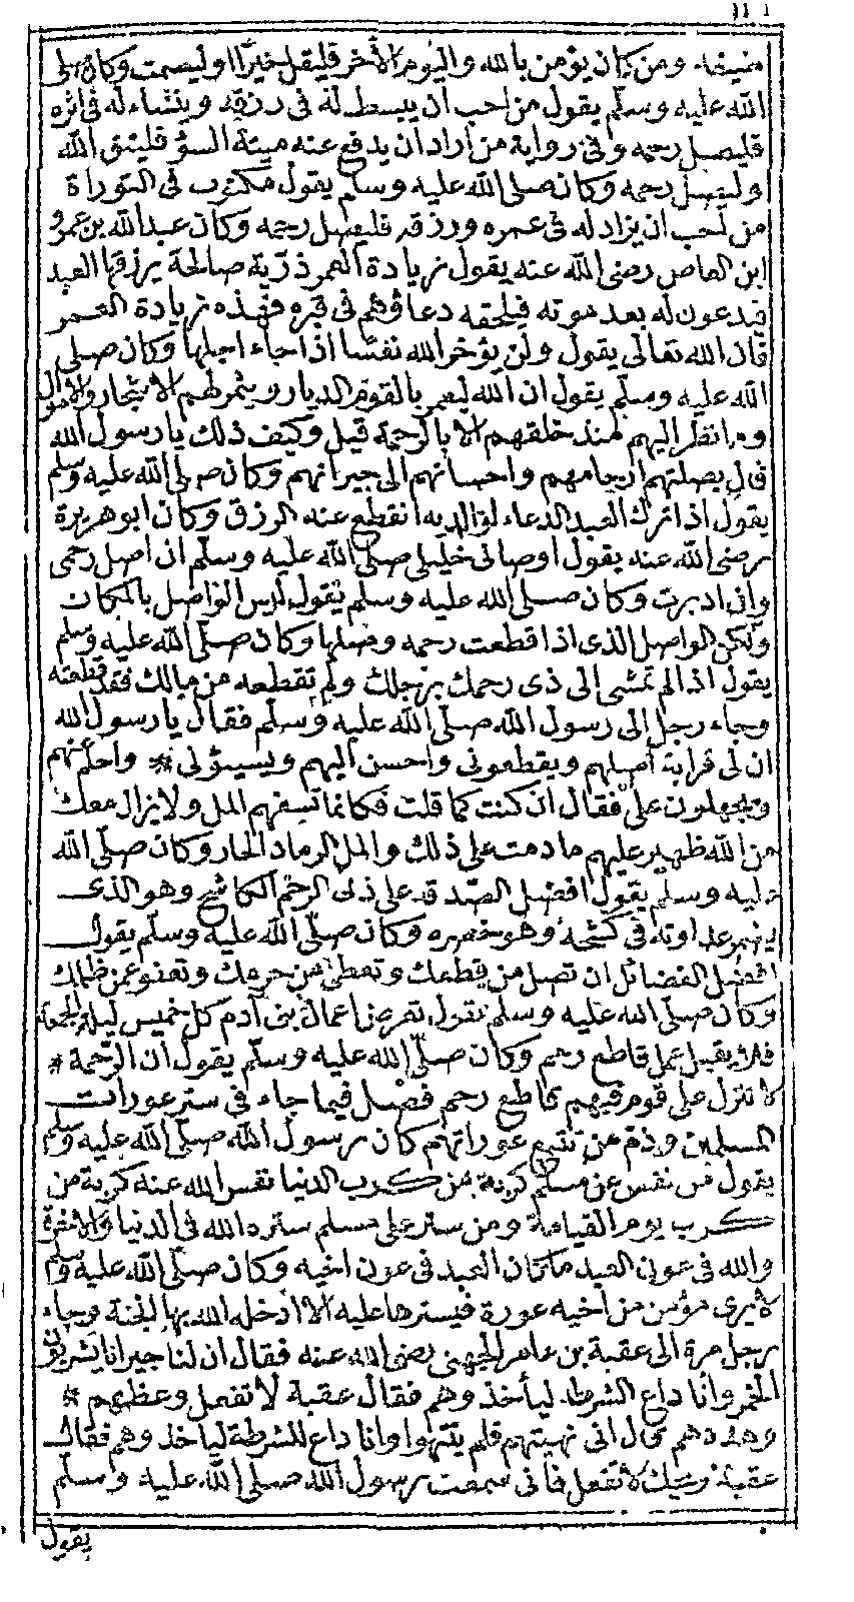 ضيفه ومن كان يؤمن بالله واليوم الأخر فليقل خيرًا او ليصمت وكان صلى
الله عليه وسلم يقول من احب ان يبسط له في رزقه وينشاء له في اثره
فليصل رحمه وفي رواية من اراد ان يدفع عنه ميتة السؤ فليتق الله
وليصل رحمه وكان صلى الله عليه وسلم يقول مكتوب في التوراة
من احب ان يزاد له في عمره ورزقه فليصل رحمه وكان عبد الله بن عمرو
ابن العاص رضى الله عنه يقول زيادة العمر ذرّية صالحة يرزقها العبد
فيدعون له بعد موته فيلحقه دعاؤهم في قبره فهذه زيادة العمر
قال الله تعالى يقول ولن يؤخر الله نفسًا اذا جاء اجلها وكان صلى
الله عليه وسلم يقول ان الله ليعمر بالقوم الديار ويثمر لهم الاشجار والاموال
وما نظر اليهم منذ خلقهم الا بالرحمة قيل وكيف ذلك يا رسول الله
قال بصلتهم ارحامهم واحسانهم الى جيرانهم وكان صلى الله عليه وسلم
يقول اذا ترك العبد الدعاء لوالديه انقطع عنه الرزق وكان ابو هريرة
رضى الله عنه يقول اوصانى خليلى صلى الله عليه وسلم ان اصل رحمى
وان ادبرت وكان صلى الله عليه وسلم يقول ليس الواصل بالمكان
ولكن الواصل الذى اذا قطعت رحمه وصلها وكان صلى الله عليه وسلم
يقول اذا لم تمشى الى ذى رحمك برجلك ولم تقطعه من مالك فقد قطعته
وجاء رجل الى رسول الله صلى الله عليه وسلم فقال يا رسول الله
ان لى قرابة أصلهم ويقطعونى واحسن اليهم ويسيؤنى * واحلم عنهم
ويجهلون على فقال ان كنت كما قلت فكانما تسفهم المل ولا يزال معك
من الله ظهير عليهم ما دمت على ذلك والمل الرماد الحار وكان صلى الله
عليه وسلم يقول افضل الصدقة على ذى الرحم الكاشح وهو الذى
يضمر عداوته فى كشحه وهو خصره وكان صلى الله عليه وسلم يقول
افضل الفضائل ان تصل من قطعك وتعطى من حرمك وتعفو عمن ظلمك
وكان صلى الله عليه وسلم يقول تعرض اعمال بنى آدم كل خميس ليلة الجمعة
فلا يقبل عمل قاطع رحم وكان صلى الله عليه وسلم يقول ان الرحمة *
لا تنزل على قوم فيهم قاطع رحم فصل فيما جاء في ستر عورات
المسلمين وذم من تتبع عوراتهم كان رسول الله صلى الله عليه وسلم
يقول من نفس عن مسلم كربة من كرب الدنيا نفس الله عنه كربة من
كرب يوم القيامة ومن ستر على مسلم ستره الله فى الدنيا والاخرة
والله في عون العبد ما كان العبد فى عون اخيه وكان صلى الله عليه وسلم
لا يرى مؤمن من اخيه عورة فيسترها عليه الا ادخله الله بها الجنة وجاء
رجل مرة الى عقبة بن عامر الجهنى رضى الله عنه فقال ان لنا جيرانا يشربون
الخمر وانا داع الشرط ليأخذوهم فقال عقبة لا تفعل وعظهم *
وهددهم قال انى نهيتهم فلم ينتهوا وانا داع للشرطة ليأخذوهم فقال
عقبة ويحك لا تفعل فانى سمعت رسول الله صلى الله عليه وسلم
يقول